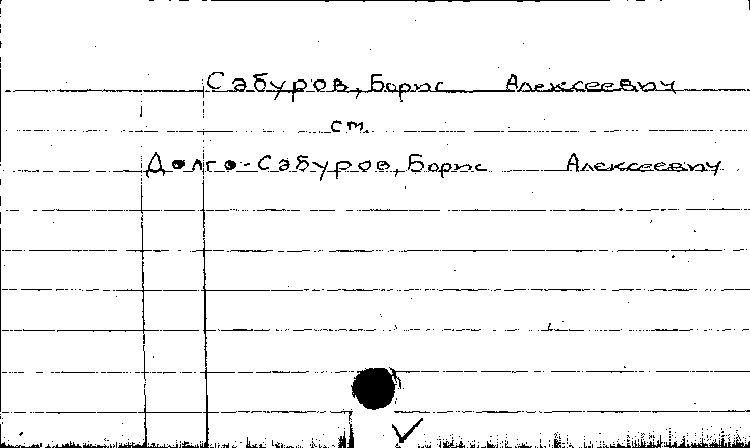 Сабуров, Борис Алексеевич
см.
Долго-Сабуров, Борис Алексеевич